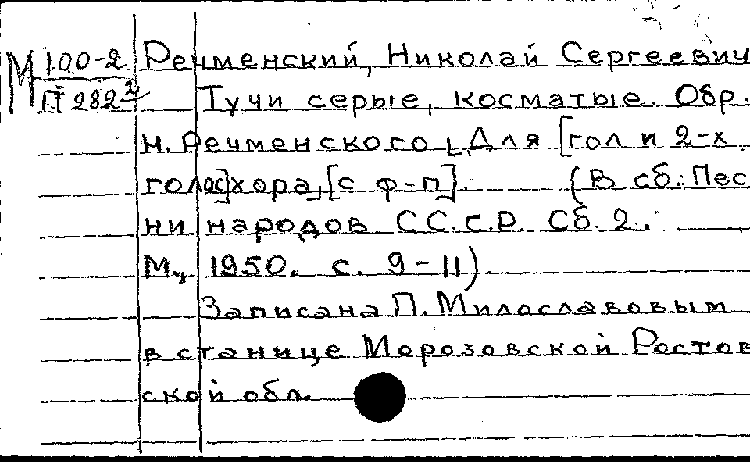 М 100-2
П 282²
Речменский, Николай Сергеевич
Тучи серые, косматые. Обр.
Н. Речменского. Для [гол и 2-х
голос]хора, [с ф-п]. (В сб.: Пес
ни народов С.С.С.Р. Сб. 2.
М., 1950. с. 9-11)
Записана П. Милославовым
в станице Морозовской Ростов
ской обл.